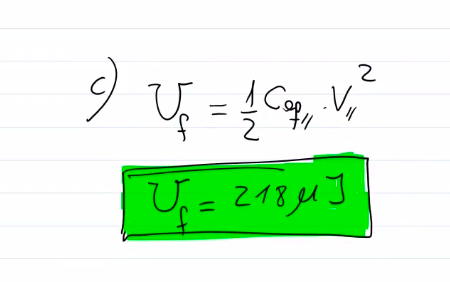 c) U_f = 1/2 C_eq,, . V,,²
U_f = 218 μJ